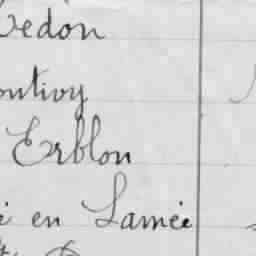 Redon
Pontivy
Erblon
en Lamée